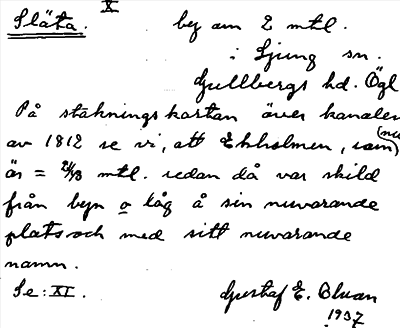 X
Släta. by om 2 mtl.
i Ljung sn.
Gullbergs hd. Ögl
På stakningskartan över kanalen
av 1812 se vi, att Ekholmen, som (nu)
är = mtl. redan då var skild
från byn o låg å sin nuvarande
plats och med sitt nuvarande
namn.
Se: XI. Gustaf E. Olvan
1937